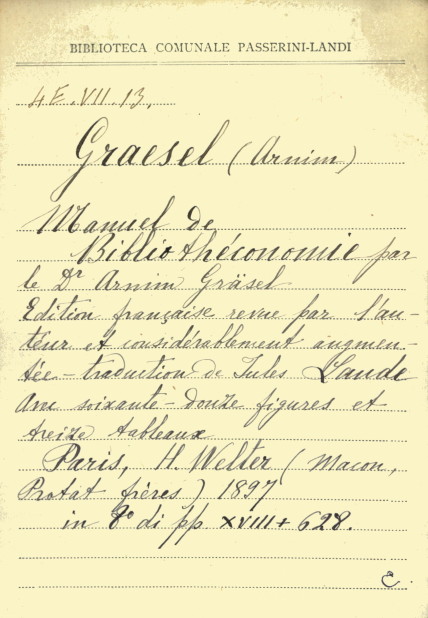 BIBLIOTECA COMUNALE PASSERINI-LANDI
4E.VII.13.
Graesel (Arnim)
Manuel de
Bibliothéconomie par
le Dr Arnim Gräsel
Edition française revue par l'au-
teur et considérablement augmen-
tée - traduction de Jules Laude
Avec soixante-douze figures et
treize tableaux
Paris, H. Welter (Macon,
Protat frères) 1897
in 8° di pp. XVIII + 628.
C.